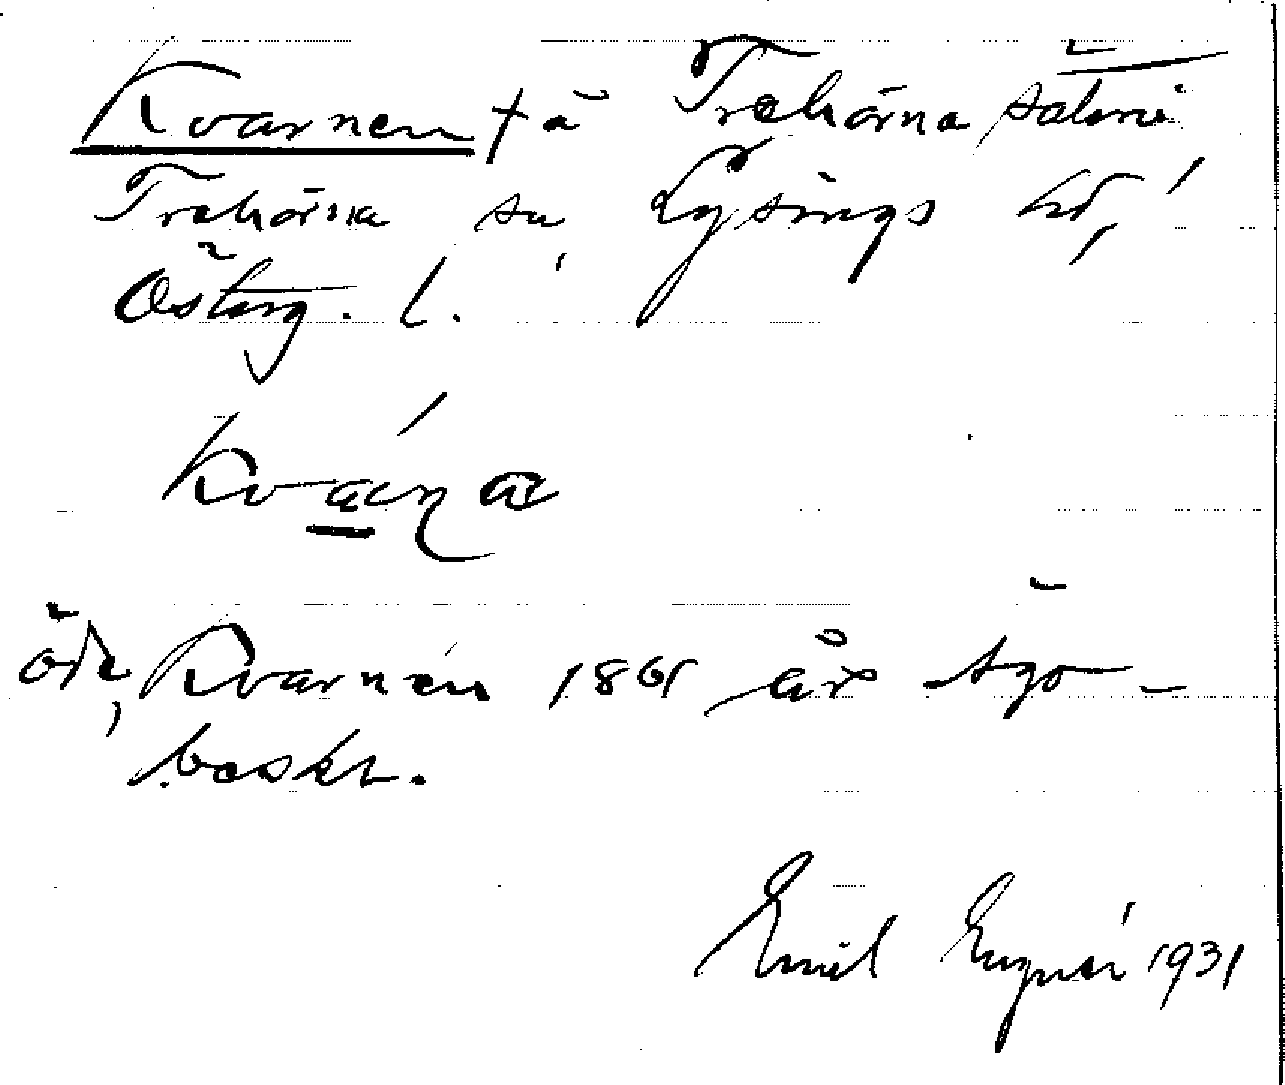 Kvarnen † å Trehörna säteri
Trehörna sn Lysings hd,
Österg. l.
Kváṇa
öde, Kvarnen 1861 års ägo-
beskr.
Emil Engnér 1931